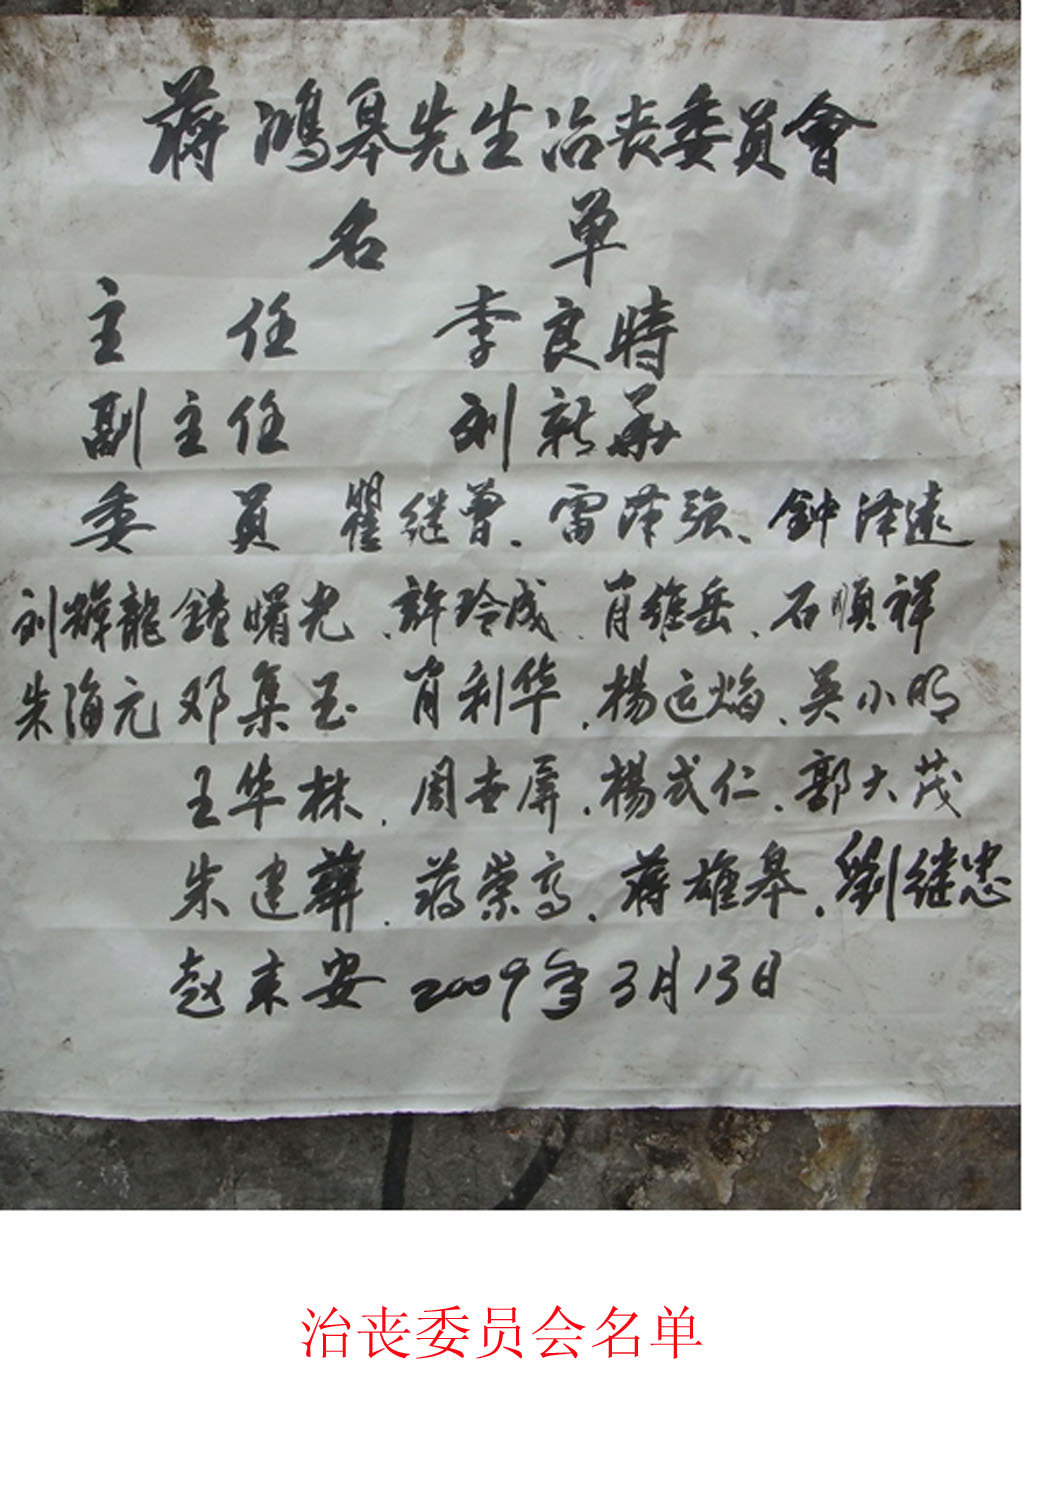 蒋鴻皋先生治丧委員會
名 单
主 任 李良時
副主任 刘新华
委 員 瞿继曾、雷泽强、钟泽远
刘辉龍 鐘曙光、許玲成、肖维岳、石順祥
朱海元 邓集玉 肖利华、楊运焰、吴小明
王华林、周世屏、楊武仁、郭大茂
朱建華、蒋崇高、蒋雄皋、劉继忠
赵来安 2009年3月13日
治丧委员会名单